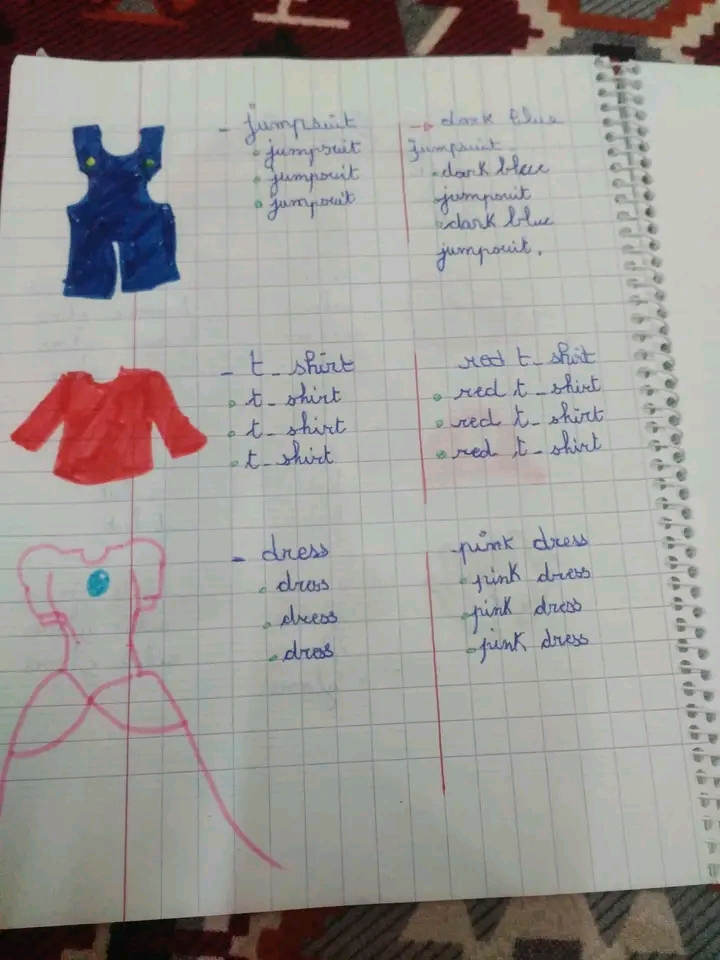 - jumpsuit
• jumpsuit
• jumpsuit
• jumpsuit
→ dark blue
jumpsuit
• dark blue
jumpsuit
• dark blue
jumpsuit.
- t_shirt
• t_shirt
• t_shirt
• t_shirt
red t_shirt
• red t_shirt
• red t_shirt
• red t_shirt
- dress
• dress
• dress
• dress
pink dress
• pink dress
• pink dress
• pink dress